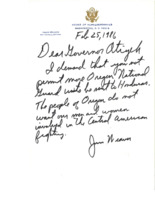 Feb 25, 1986
Dear Governor Atiyeh
I demand that you not
permit more Oregon National
Guard units be sent to Honduras.
The people of Oregon do not
want our men and women
involved in the Central American
fighting.
Jim Weaver